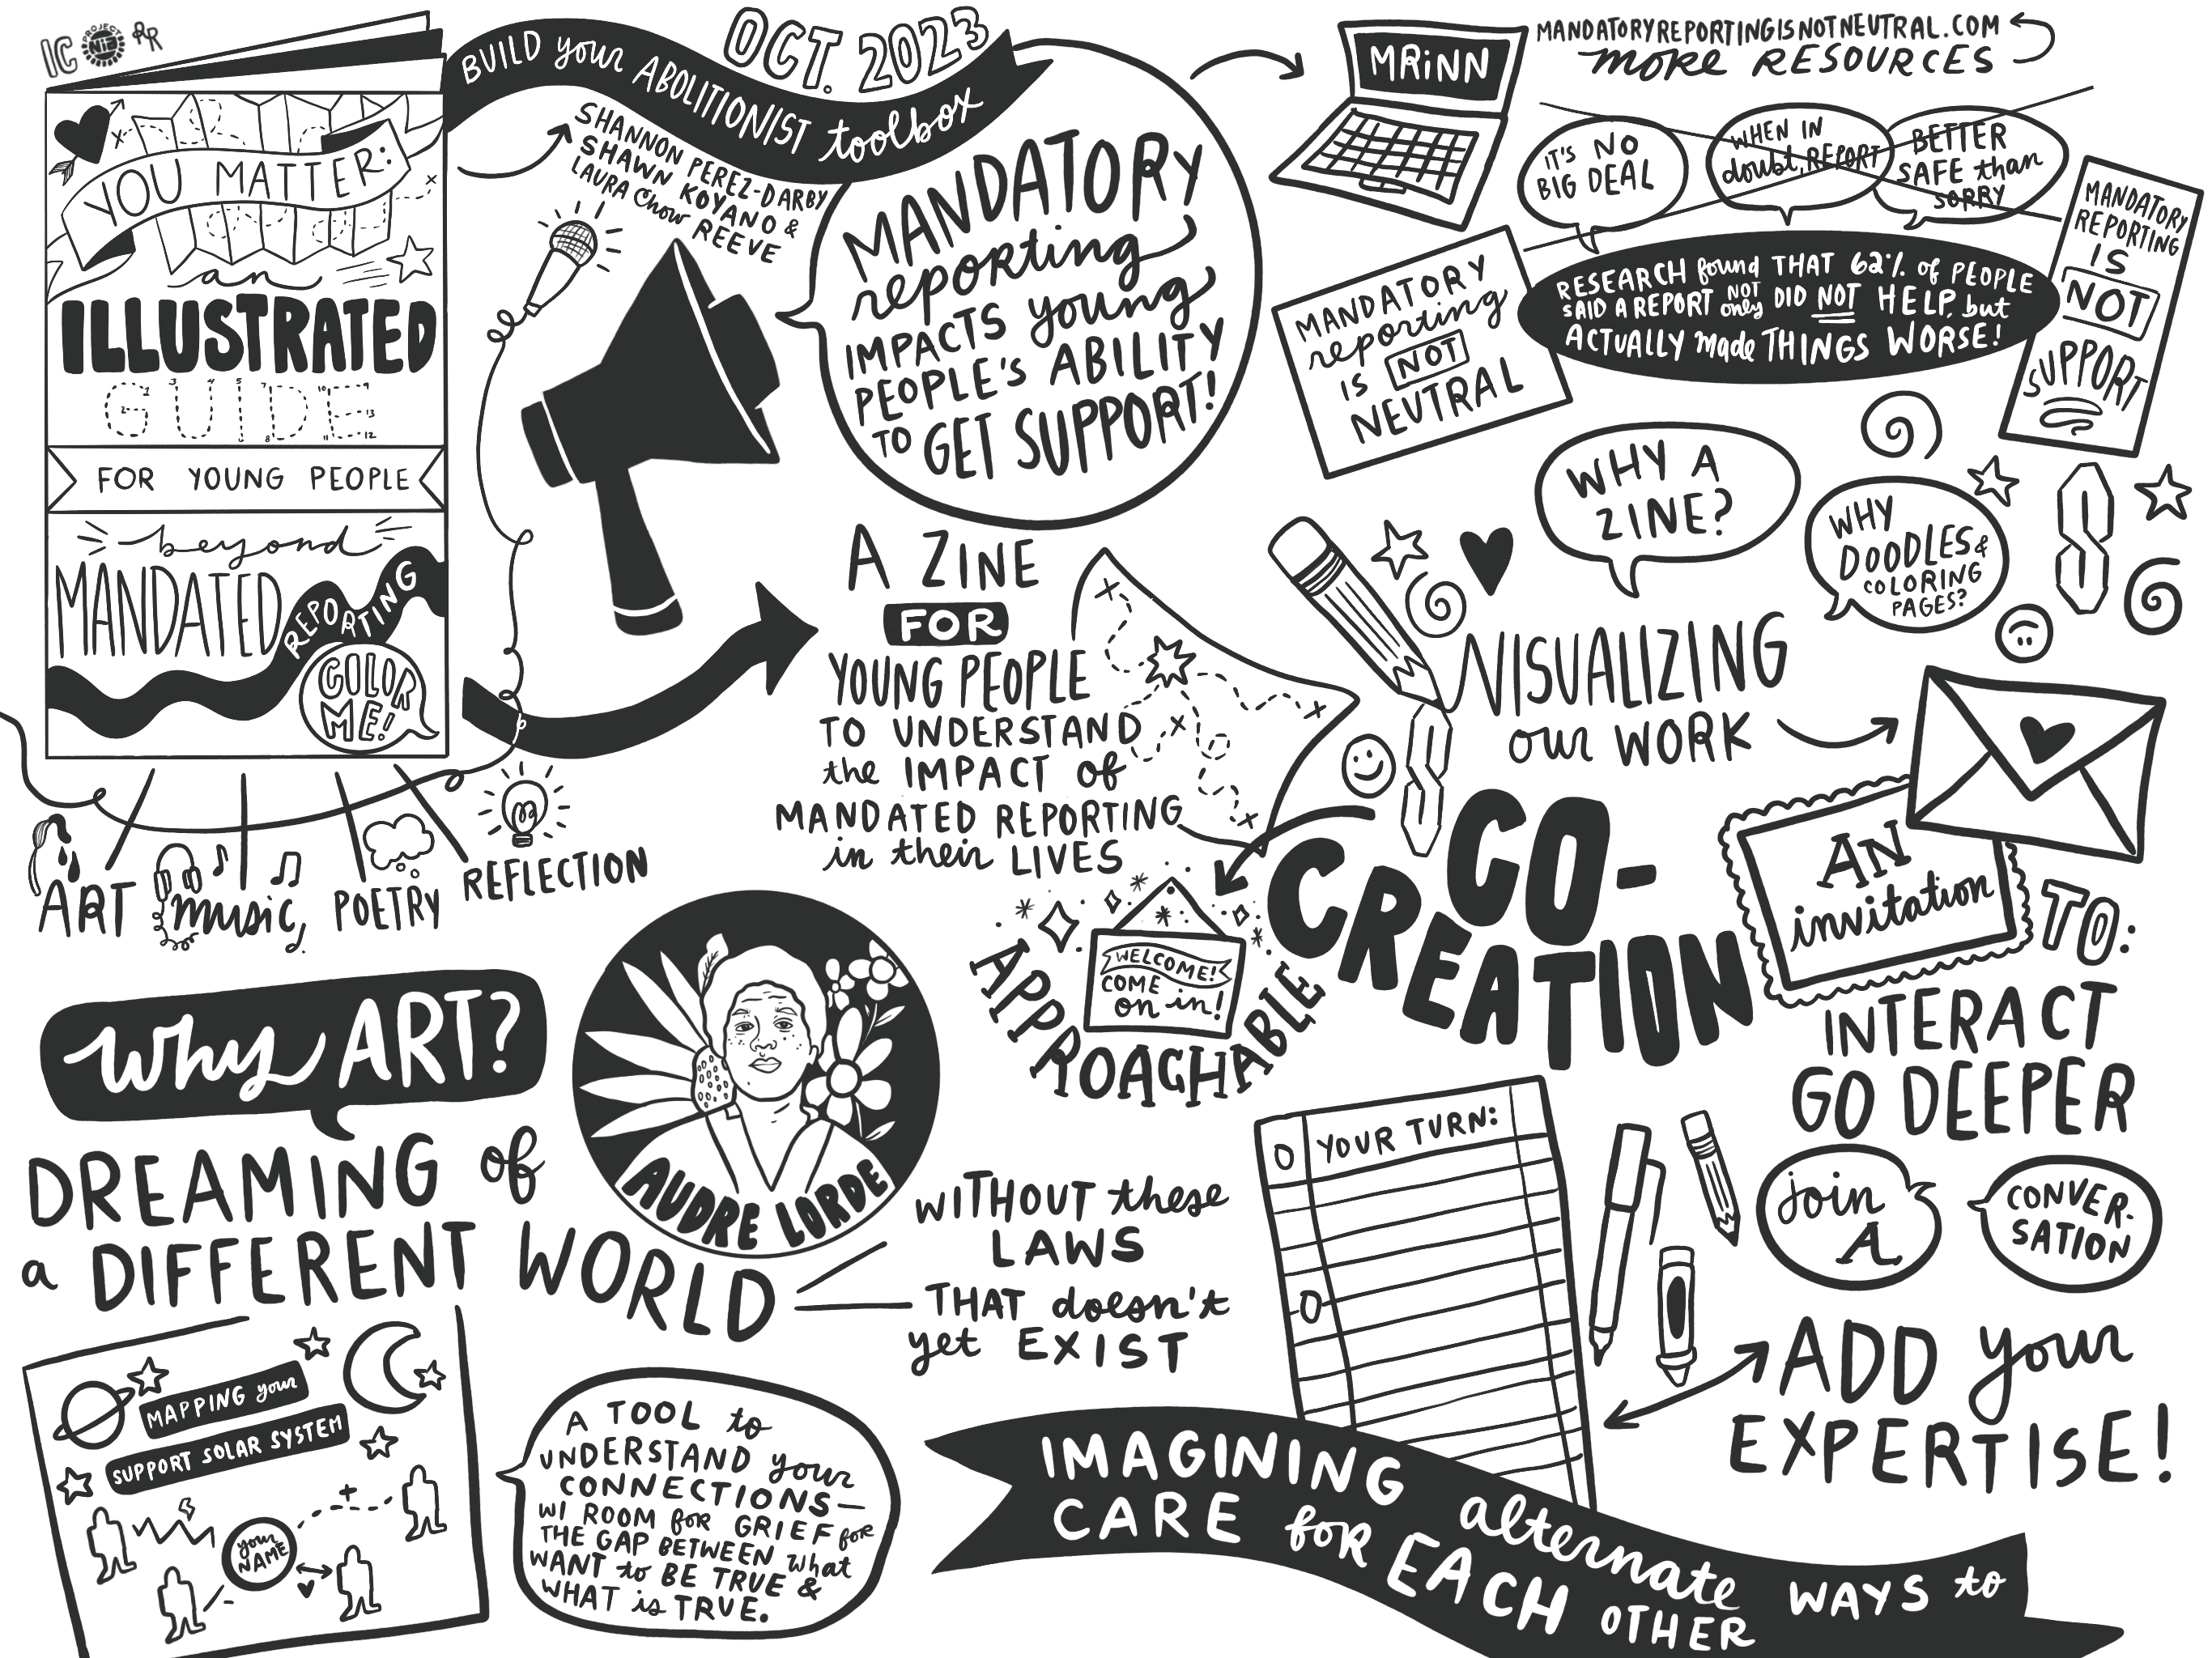 IC
PROJECT
NIA
RR
YOU MATTER:
an
ILLUSTRATED
GUIDE
FOR YOUNG PEOPLE
beyond
MANDATED
REPORTING
COLOR
ME!
BUILD your ABOLITIONIST toolbox
OCT. 2023
SHANNON PEREZ-DARBY
SHAWN KOYANO &
LAURA Chow REEVE
MANDATORY
reporting
IMPACTS young
PEOPLE'S ABILITY
TO GET SUPPORT!
MRiNN
MANDATORYREPORTINGISNOTNEUTRAL.COM
more RESOURCES
IT'S NO
BIG DEAL
WHEN IN
doubt, REPORT
BETTER
SAFE than
SORRY
RESEARCH found THAT 62% of PEOPLE
SAID A REPORT NOT only DID NOT HELP, but
ACTUALLY made THINGS WORSE!
MANDATORY
reporting
IS NOT
NEUTRAL
MANDATORY
REPORTING
IS
NOT
SUPPORT
A ZINE
FOR
YOUNG PEOPLE
TO UNDERSTAND
the IMPACT of
MANDATED REPORTING
in their LIVES
WHY A
ZINE?
WHY
DOODLES &
COLORING
PAGES?
VISUALIZING
our WORK
ART
music
POETRY
REFLECTION
why ART?
DREAMING of
a DIFFERENT WORLD
AUDRE LORDE
WITHOUT these
LAWS
THAT doesn't
yet EXIST
WELCOME!
COME
on in!
APPROACHABLE
CO-
CREATION
AN
invitation
TO:
INTERACT
GO DEEPER
join
A
CONVER-
SATION
YOUR TURN:
ADD your
EXPERTISE!
MAPPING your
SUPPORT SOLAR SYSTEM
your
NAME
A TOOL to
UNDERSTAND your
CONNECTIONS—
W/ ROOM for GRIEF for
THE GAP BETWEEN what
WANT to BE TRUE &
WHAT is TRUE.
IMAGINING alternate WAYS to
CARE for EACH OTHER